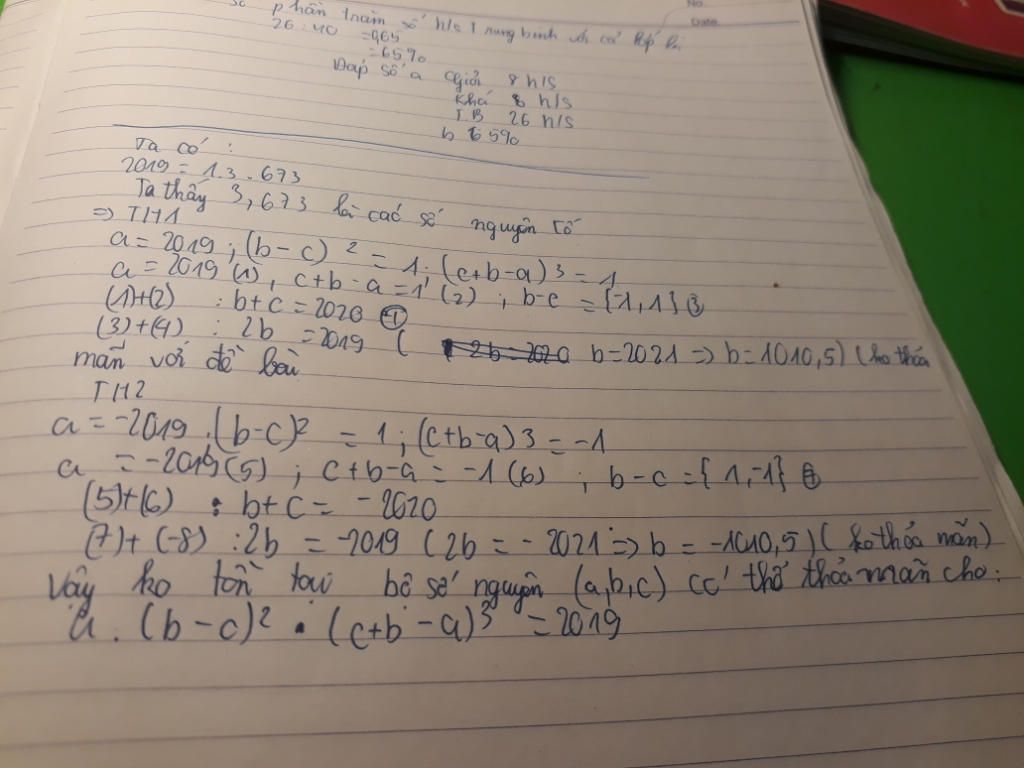 No.
Date
phần trăm số h/s Trung bình với cả lớp là
26 : 40 = 0,65
= 65%
Đáp số a Giỏi 8 h/s
Khá 8 h/s
T.B 26 h/s
b 65%
Ta có :
2019 = 1.3.673
Ta thấy 3,673 là các số nguyên tố
=> TH1
a = 2019 ; (b-c)² = 1. (c+b-a)³ = 1
a = 2019 (1), c+b-a = 1 (2) ; b-c = {1,1} (3)
(1)+(2) : b+c = 2020 (4)
(3)+(4) : 2b = 2019 ( b=2021 => b=1010,5) (ko thỏa
mãn với đề bài
TH2
a = -2019 .(b-c)² = 1 ; (c+b-a)3 = -1
a = -2019 (5) ; c+b-a = -1 (6) ; b-c = {1,-1}
(5)+(6) : b+c = -2020
(7)+(-8) : 2b = -2019 (2b = -2021 => b = -1010,5) (ko thỏa mãn)
Vậy ko tồn tại bộ số nguyên (a,b,c) có thể thỏa mãn cho:
a. (b-c)² . (c+b-a)³ = 2019